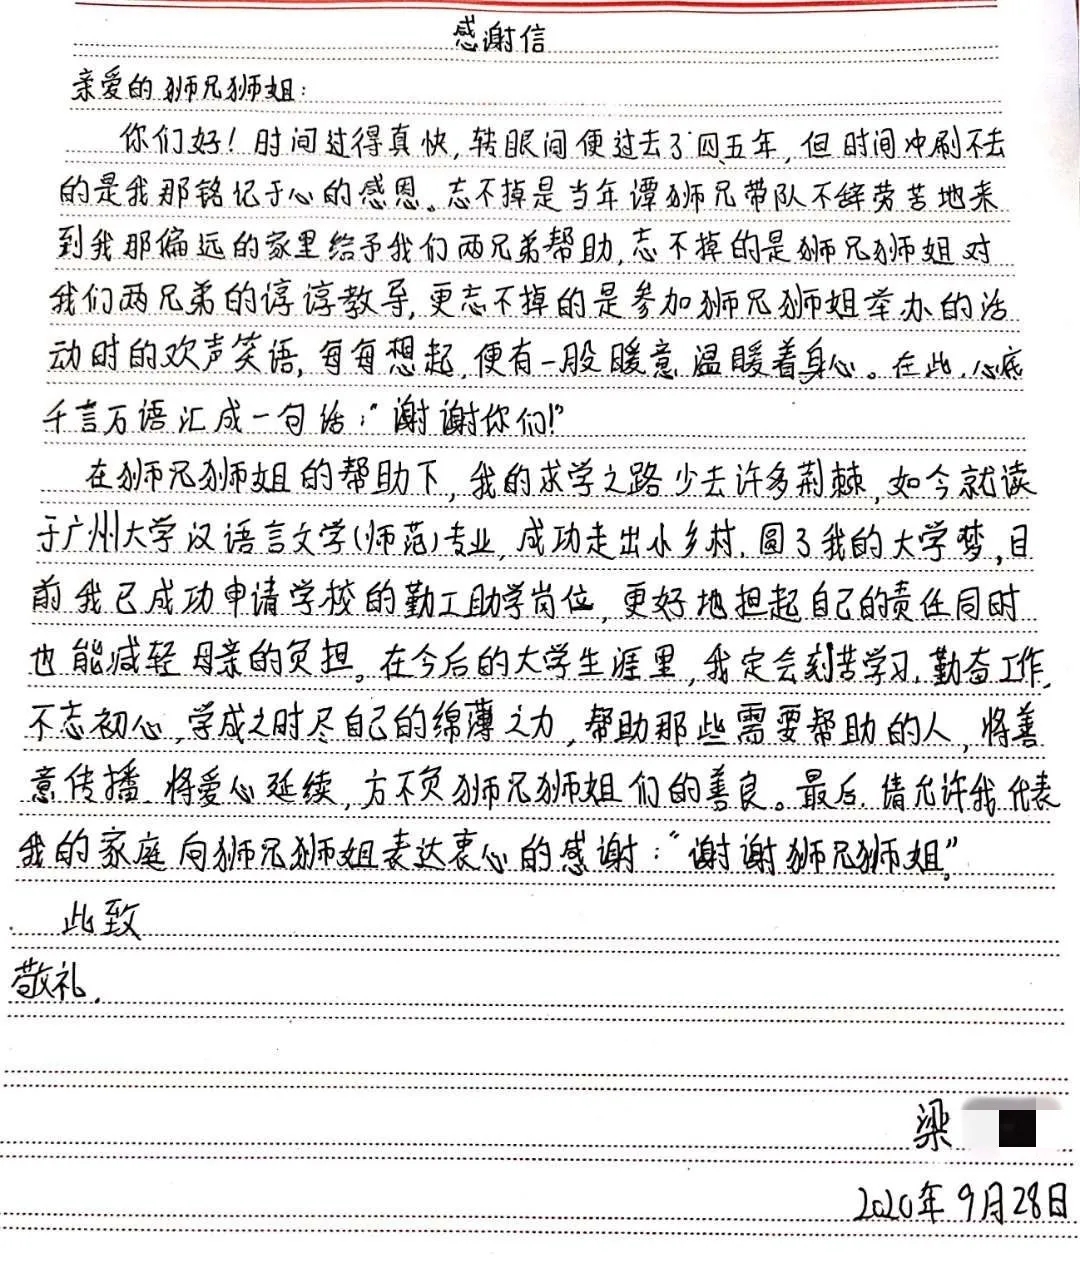 感谢信
亲爱的狮兄狮姐：
你们好！时间过得真快，转眼间便过去了四五年，但时间冲刷不去
的是我那铭记于心的感恩。忘不掉是当年谭狮兄带队不辞劳苦地来
到我那偏远的家里给予我们两兄弟帮助，忘不掉的是狮兄狮姐对
我们两兄弟的谆谆教导，更忘不掉的是参加狮兄狮姐举办的活
动时的欢声笑语，每每想起，便有一股暖意温暖着身心。在此，心底
千言万语汇成一句话：“谢谢你们！”
在狮兄狮姐的帮助下，我的求学之路少去许多荆棘，如今就读
于广州大学汉语言文学(师范)专业，成功走出小乡村，圆了我的大学梦，目
前我已成功申请学校的勤工助学岗位，更好地担起自己的责任同时
也能减轻母亲的负担。在今后的大学生涯里，我定会刻苦学习，勤奋工作，
不忘初心，学成之时尽自己的绵薄之力，帮助那些需要帮助的人，将善
意传播，将爱心延续，方不负狮兄狮姐们的善良。最后，请允许我代表
我的家庭向狮兄狮姐表达衷心的感谢：“谢谢狮兄狮姐”。
此致
敬礼.
梁
2020年9月28日